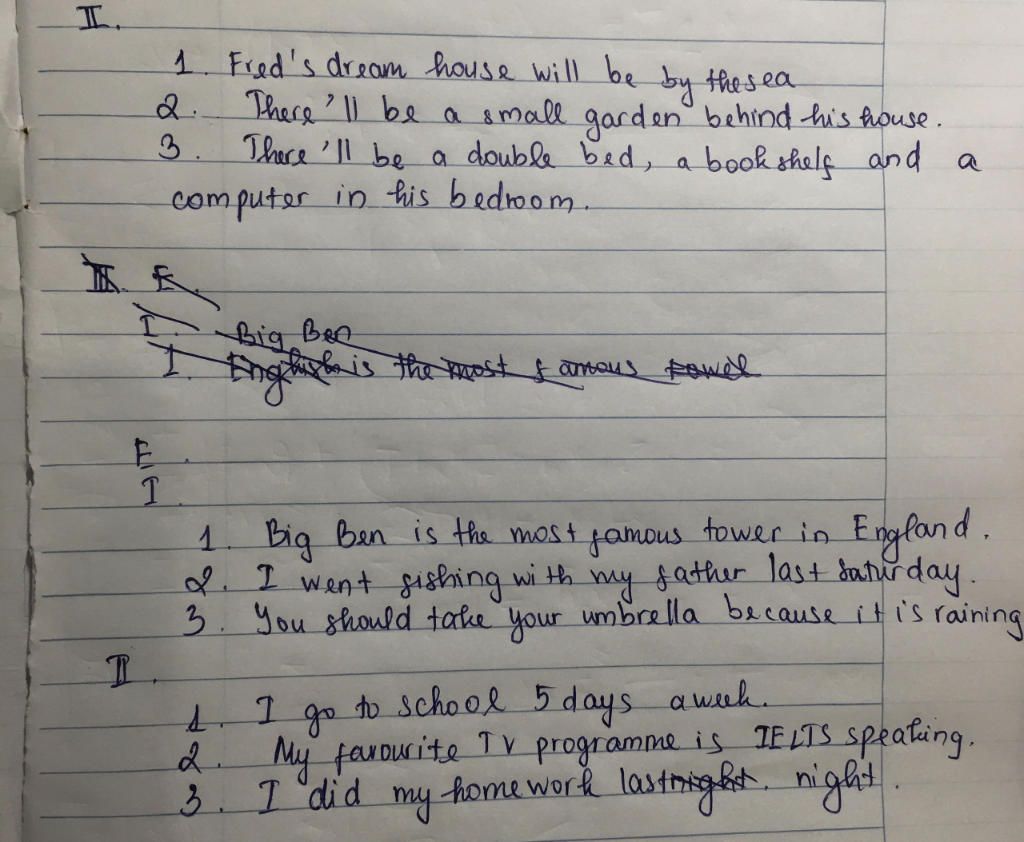 II.
1. Fred's dream house will be by the sea
2. There'll be a small garden behind his house.
3. There'll be a double bed, a bookshelf and a
computer in his bedroom.
III. E.
I. Big Ben
1. English is the most famous towel
E.
I.
1. Big Ben is the most famous tower in England.
2. I went fishing with my father last saturday.
3. You should take your umbrella because it is raining
II.
1. I go to school 5 days a week.
2. My favourite TV programme is IELTS speaking.
3. I did my homework last night. night.